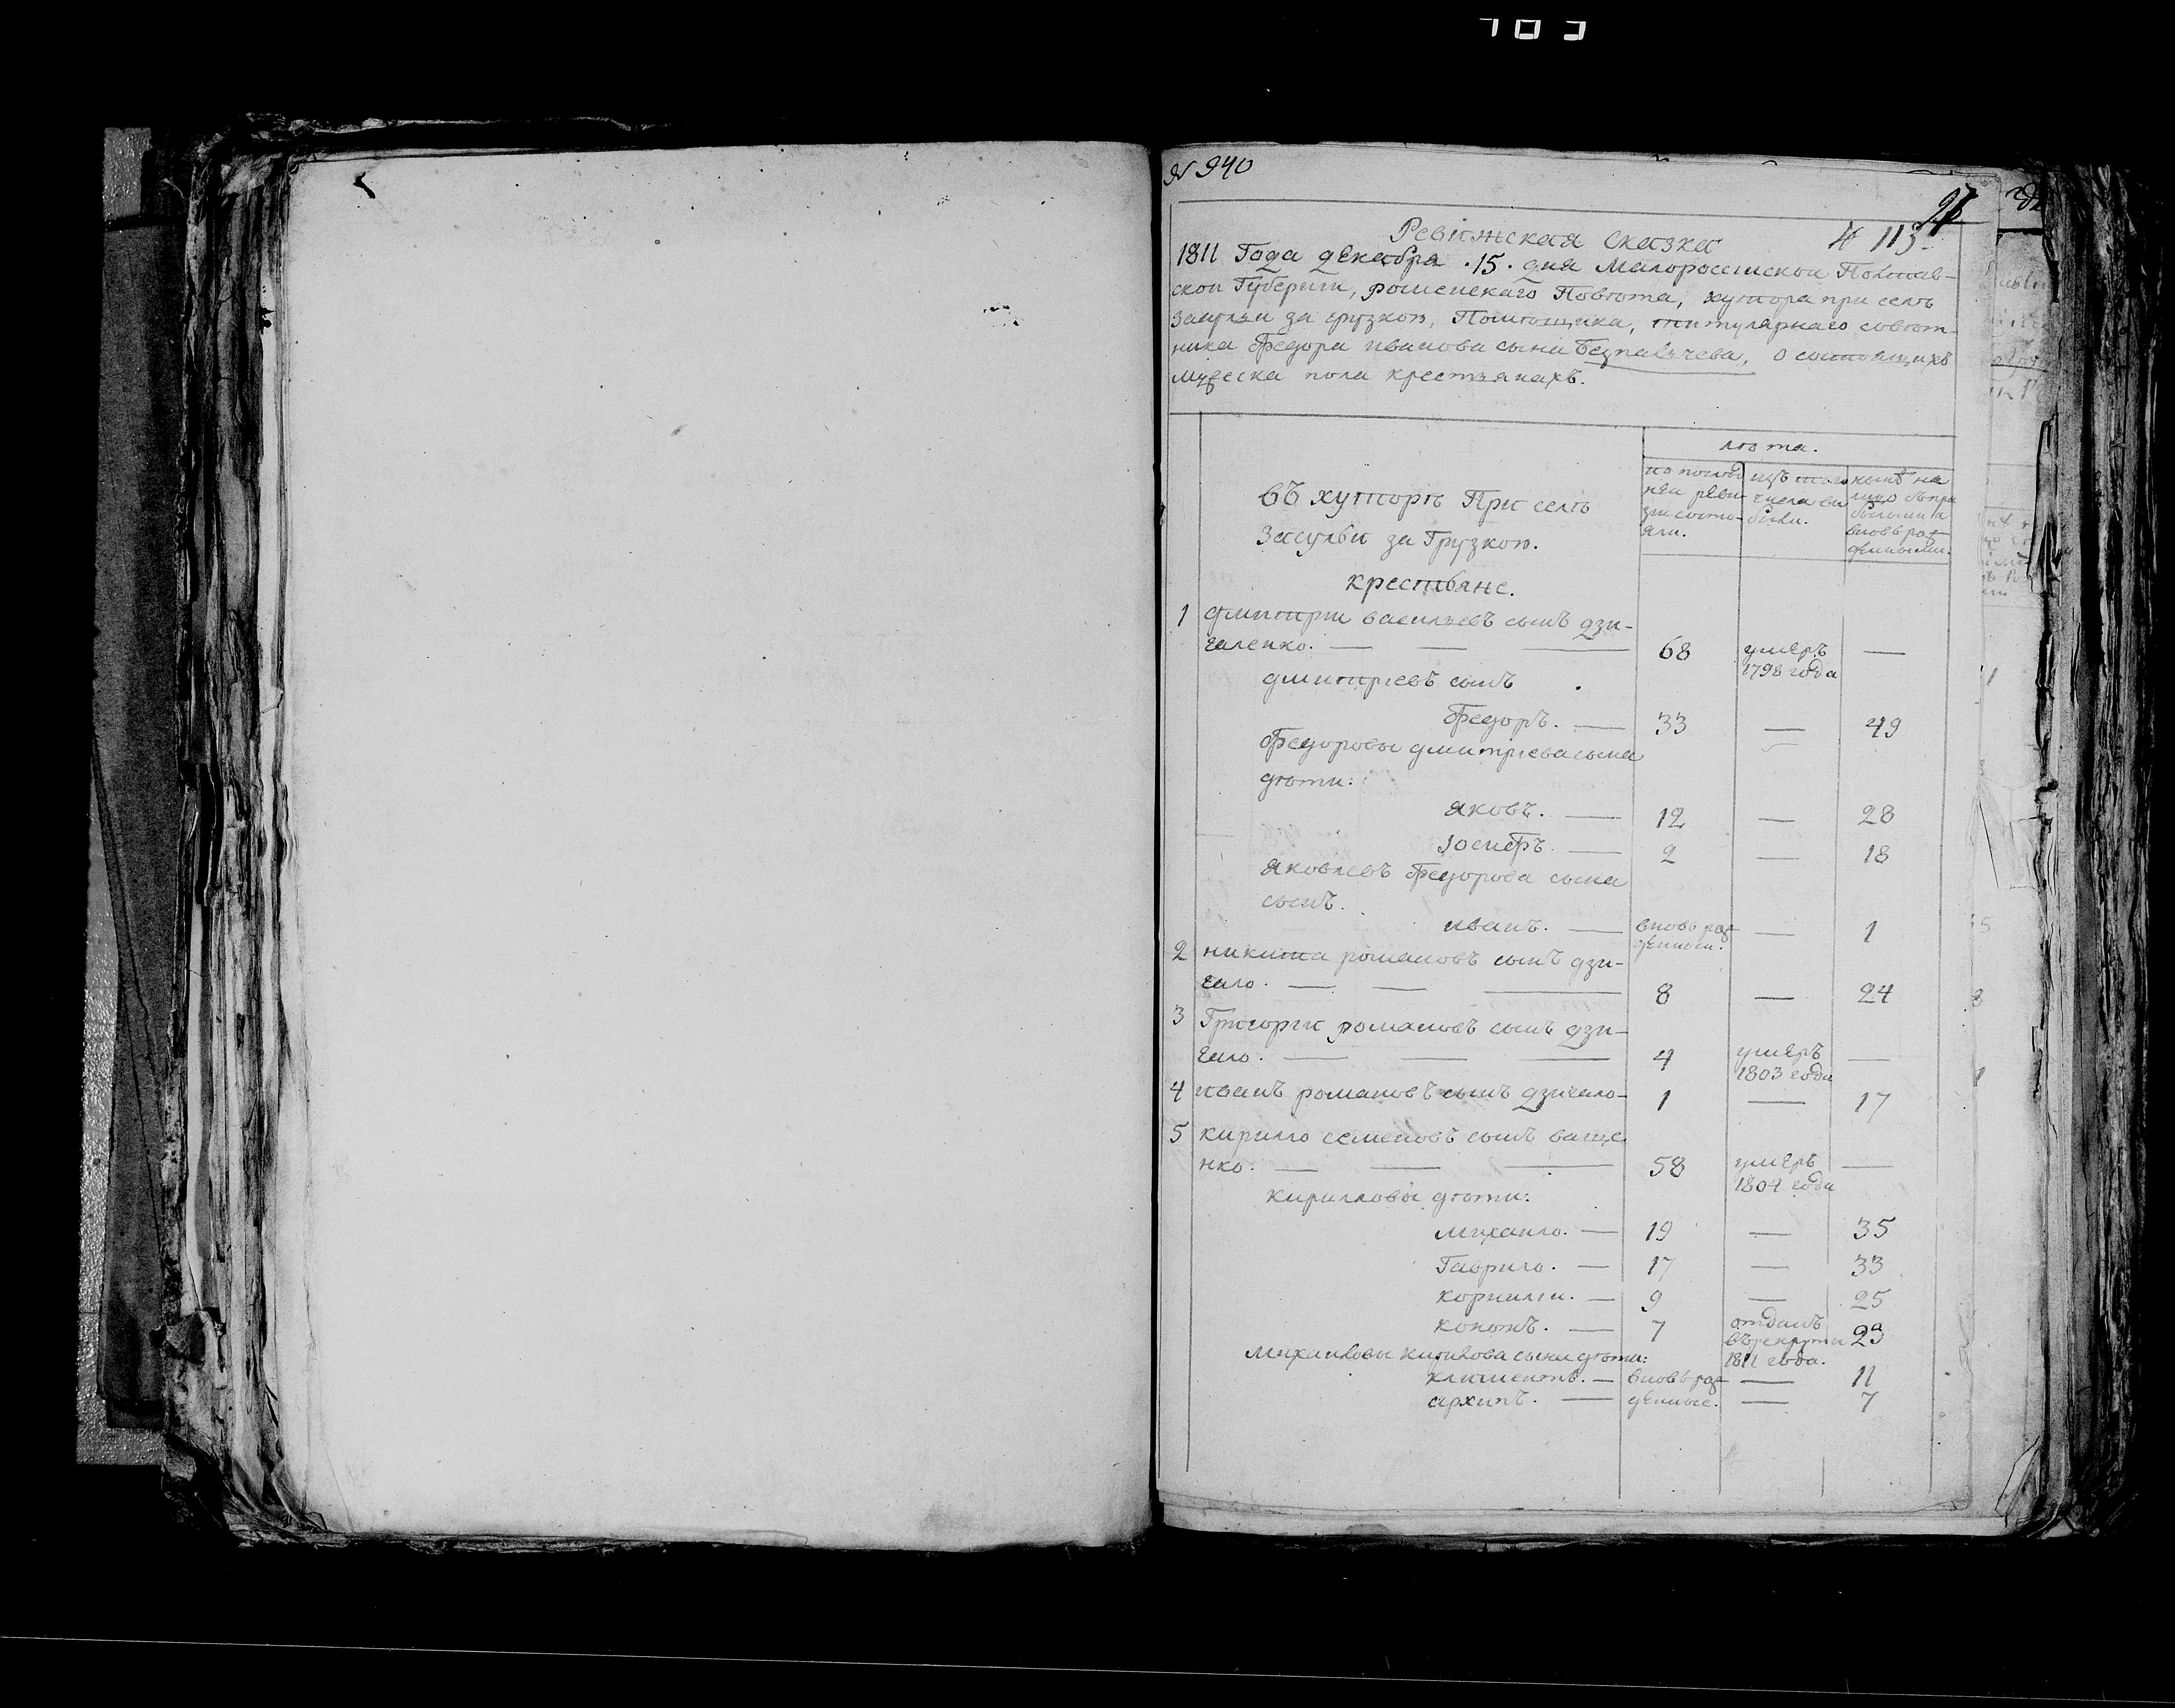 № 940
№ 113
Ревижская сказка
1811 Года декабря .15. дня Малороссииской Полтав-
ской Губернии, роменскаго Повѣта, хутора при селѣ
Засульи за грузкою, Помѣщика, титулярнаго совѣт-
ника Федора иванова сына о состоящихъ
мужеска пола крестьянахъ.
лѣта.
въ хуторѣ При селѣ
Засульи за Грузкою.
крестьяне.
по послѣд
ней реви-
зии состо-
яли.
изъ того
числа вы
были.
нынѣ на
лицо съ при
былыми и
вновь рож-
денными.
1 дмитрии васильевъ сынъ дзи-
галенко. — — — 68 умеръ 1798 года —
дмитриевъ сынъ
Федоръ. — 33 — 49
Федоровы дмитриева сына
дѣти:
яковъ. — 12 — 28
Іосифъ. — 2 — 18
яковлевъ Федорова сына
сынъ.
иванъ. — вновь рож-
денный. — 1
2 никита романовъ сынъ дзи-
гало. — — — 8 — 24
3 Григорий романовъ сынъ дзи-
гало. — — — 4 умеръ 1803 года —
4 иванъ романовъ сынъ дзигало- 1 — 17
5 кирило семеновъ сынъ ваще
нко. — — — 58 умеръ 1804 года —
кириловы дѣти:
михаило. — 19 — 35
Гаврило. — 17 — 33
корнилии. — 9 — 25
кононъ. — 7 отданъ въ рекруты 1811 года. 23
михаиловы кирилова сына дѣти:
климентъ. — вновь рож- — 11
архипъ. — денные. — 7